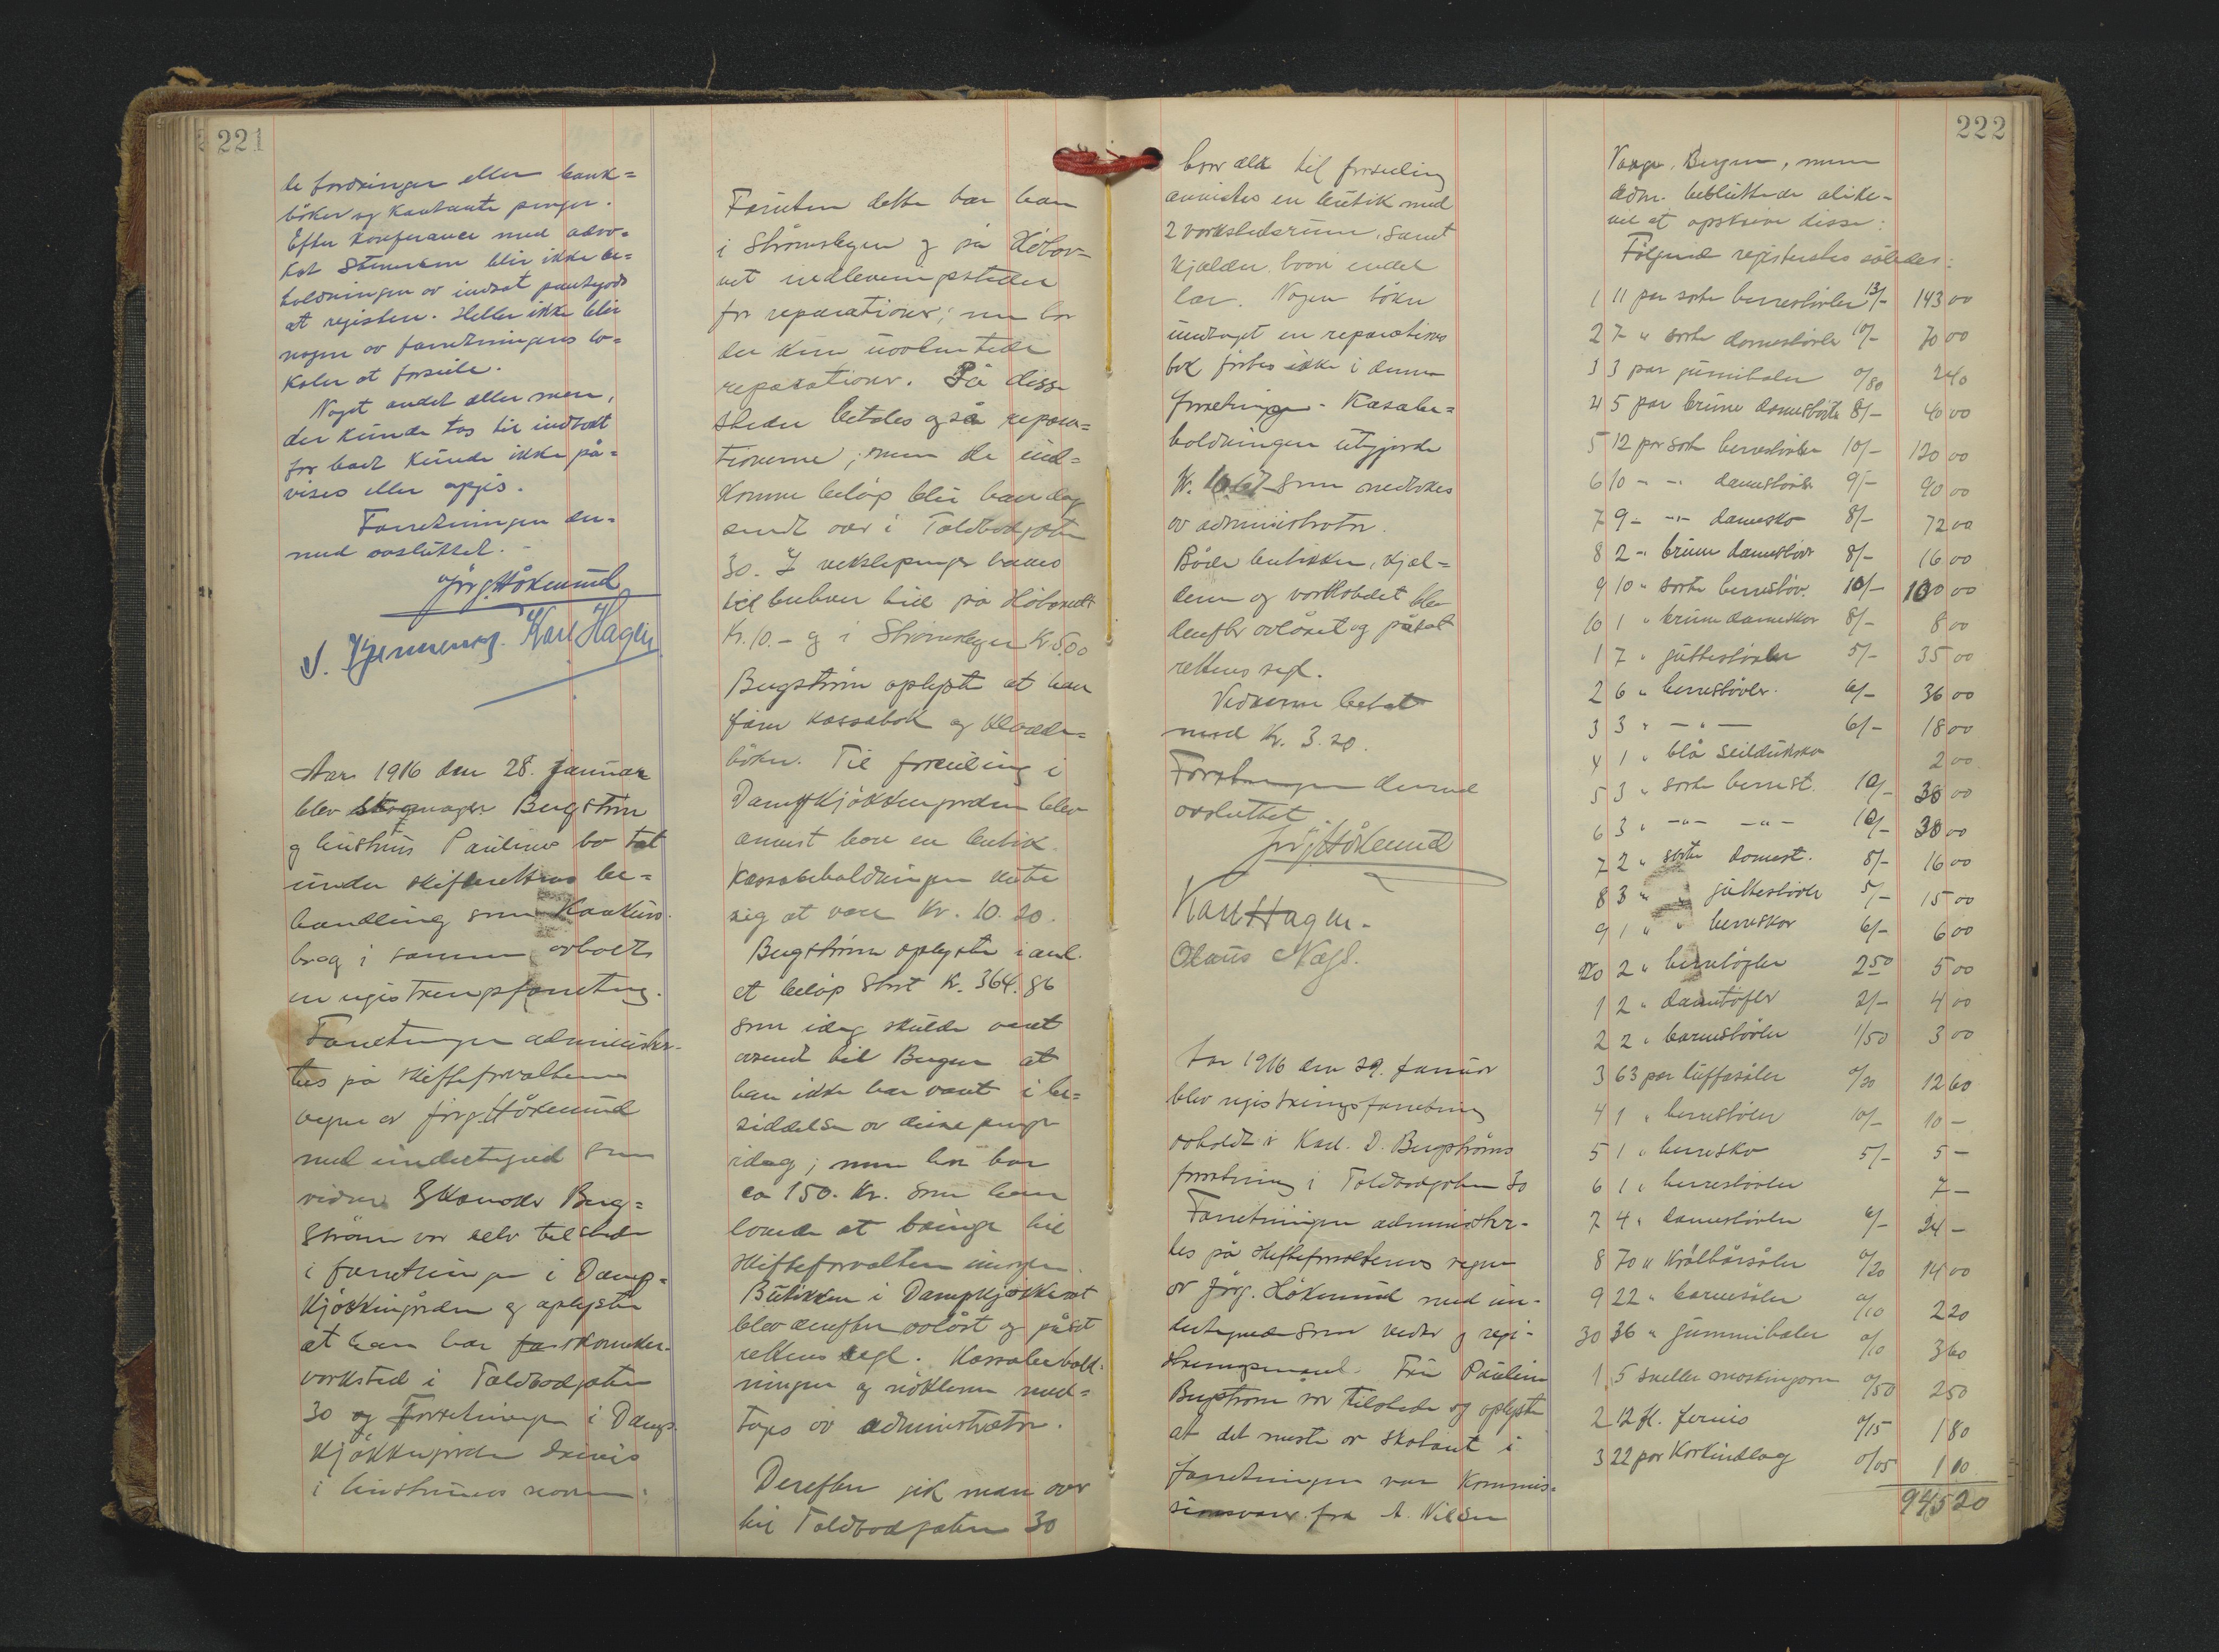 221
de fordringer eller bank=
bøker og kontante penger.
Efter konferance med advo=
kat Stenersen blir ikke be=
holdningen av indsat pantegods
at registere. Heller ikke blir
nogen av forretningens lo=
kaler at forseile.
Noget andet eller mere,
der kunde tas til indtægt
for boet kunde ikke på=
vises eller opgis.
Forretningen der=
med avsluttet.
Jørg Høkerund
Karl Hagen
Aar 1916 den 28. januar
blev skomager Bergstrøm
og hustrus Paulines bo tat
under skifterettens be=
handling som konkurs.
I den anledning avholdtes
en registreringsforretning.
Forretningen administer-
tes på skifteforvalterens
vegne av Jørg. Høkerund
med undertegned som
vidner. Skomaker Berg=
strøm var selv tilstede
i forretningen i Damp=
kjøkkengården og oplyste
at han har skomaker-
verksted i Toldbodgaten
30 og forretningen i Damp
kjøkkengården drives
i hustruens navn.
Foruten dette har han
i Strømskogen og på Hobor=
net indleveringssteder
for reparationer; men her
der kun uavhentede
reparationer. På disse
steder betales også repara=
tionerne; men de ind=
komne beløp blir hver dag
sendt over i Toldbodgaten
30. I vekslepenger haves
til enhver tid på
Kr. 10.- og i Strømskogen Kr. 5.00
Bergstrøm oplyste at han
fører kassabok og kladde=
bøker. Til forseiling i
Dampkjøkkengården blev
anvist bare en butik.
Kassabeholdningen viste
sig at være Kr. 10.20.
Bergstrøm oplyste i anl.
et beløp stort Kr. 364.86
som idag skulde været
avsendt til Bergen at
han ikke har været i be=
siddelse av disse penger
idag; men har
ca 150. Kr. som han
lovede at bringe til
skifteforvalteren imorgen.
Butikken i Dampkjøkkenet
blev derefter avlåst og påsat
rettens segl. Kassabehold-
ningen og nøklerne med=
toges av administrator.
Derefter gik man over
til Toldbodgaten 30
222
hvor der til forseiling
anvistes en butik med
2 verkstedsrum, samt
kjælder, hvori endel
lær. Nogen bøker
undtaget en reparations
bok førtes ikke i denne
forretningen. Kassabe=
holdningen utgjorde
Kr. 16.67 som medtokes
av administrator.
Både butikken, kjæl=
deren og verkstedet blev
derefter avlåset og påsat
rettens segl.
Vidnerne betalt
med Kr. 3.20.
Forretningen dermed
avsluttet
Jørg Høkerund
Karl Hagen.
Olaus Næss.
Aar 1916 den 29. januar
blev registreringsforretning
avholdt i Karl. D. Bergstrøms
forretning i Toldbodgaten 30
Forretningen administer-
tes på skifteforvalterens vegne
av Jørg. Høkerund med un-
dertegnede som vidner og regi-
streringsmænd. Fru Pauline
Bergstrøm var tilstede og oplyste
at det meste av skotøiet i
forretningen var kommis=
sionsvarer fra A. Nilsen
Bergen, men
adm. besluttede alike-
vel at opskrive disse:
Følgende registrertes således:
1 11 par sorte herrestøvler 13/- 143 00
2 7 " sorte damestøvler 10/- 70 00
3 3 par gumihæler 0/80 2 40
4 5 par brune damestøvler 8/- 40 00
5 12 par sorte herrestøvler 10/- 120 00
6 10 - -" damestøvler 9/- 90 00
7 9 - -"- damesko 8/- 72 00
8 2 -" brune damestøvl 8/- 16 00
9 10 " sorte herrestøv. 10/- 100 00
10 1 " brune damesko 8/- 8 00
1 7 " guttestøvler 5/- 35 00
2 6 " herrestøvler. 6/- 36 00
3 3 " - " - 6/- 18 00
4 1 " blå seilduksko 2 00
5 3 " sorte herrest. 10/- 30 00
6 3 " -"- -"- 10/- 30 00
7 2 " sorte damest. 8/- 16 00
8 3 " " guttestøvler 5/- 15 00
9 1 " " herresko 6/- 6 00
20 2 " herretøfler 2 50 5 00
1 2 " dametøfler 2/- 4 00
2 2 " barnestøvler 1/50 3 00
3 63 par luffasåler 0/20 12 60
4 1 " herrestøvler 10/- 10 -
5 1 " herresko 5/- 5 -
6 1 " herrestøvler 7 -
7 4 " damestøvler 6/- 24 -
8 70 " krølhårsåler 0/20 14 00
9 22 " barnesåler 0/10 2 20
30 36 " gummihæler 0/10 3 60
1 5 sneller maskingarn 0/50 2 50
2 12 fl. fernis 0/15 1 80
3 22 par korkindlæg 0/05 1 10
945 20